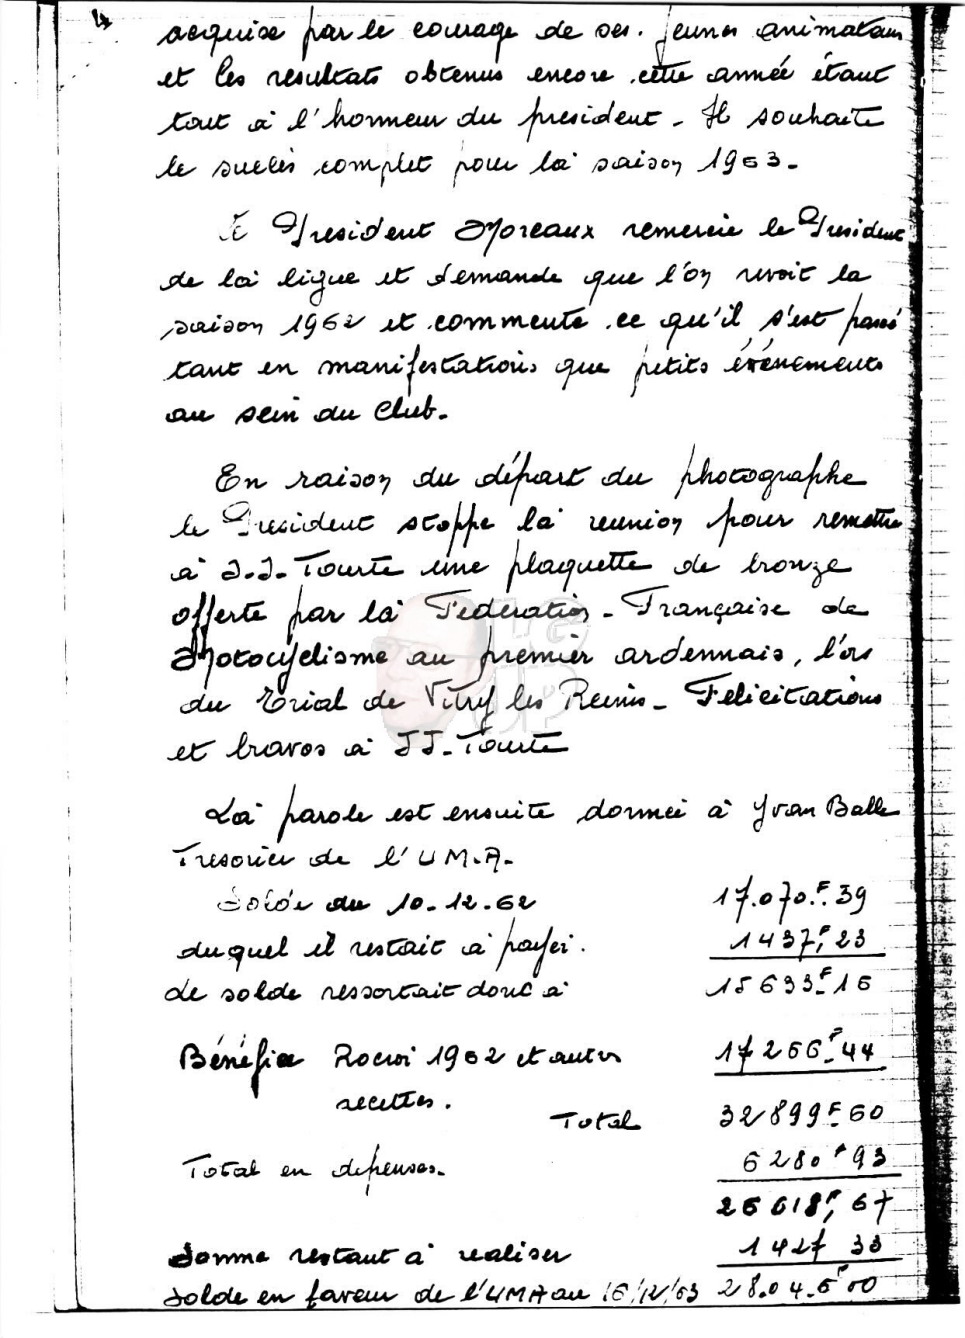 4.
acquise par le courage de ses. jeunes animateurs
et les resultats obtenus encore cette année étant
tout à l'honneur du president - Il souhaite
le succès complet pour la saison 1963.
Le President Moreaux remercie le President
de la ligue et demande que l'on revoit la
saison 1962 et commente ce qu'il s'est passé
tant en manifestations que petits événements
au sein du Club.
En raison du départ du photographe
le President stoppe la reunion pour remettre
à J.J. Tourte une plaquette de bronze
offerte par la Fédération - Française de
Motocyclisme au premier ardennais, lors
du Trial de Vitry les Reims - Felicitations
et bravos à JJ. Tourte
La parole est ensuite donnée à Yvan Balle
Tresorier de l'U.M.A.
Solde au 10.12.62 17.070.F39
duquel il restait à payer. 1437,F23
de solde ressortait donc à 15633F16
Bénéfice Rocroi 1962 et autres 17266F44
recettes.
Total 32899F60
Total en depenses. 6280F93
26618F,67
Somme restant à realiser 1427 33
Solde en faveur de l'UMA au 16/12/63 28.04.6F00